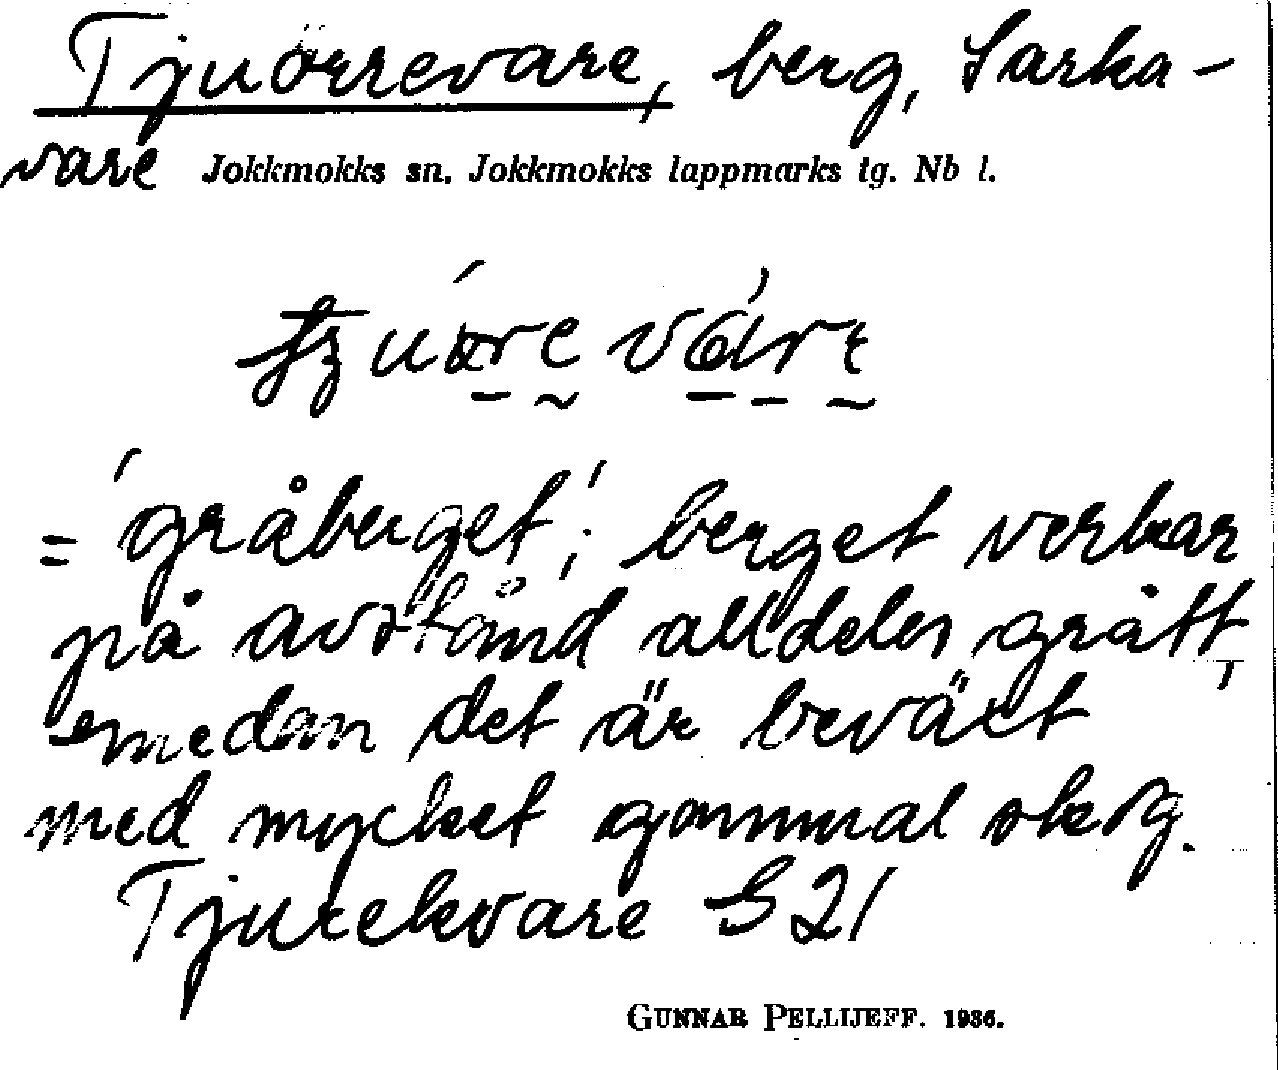 Tjuorrevare, berg, Sarka-
vare Jokkmokks sn. Jokkmokks lappmarks tg. Nb l.
= 'gråberget'; berget verkar
på avstånd alldeles grått,
medan det är beväxt
med mycket gammal skog.
Tjurekvare S 21
GUNNAR PELLIJEFF. 1936.